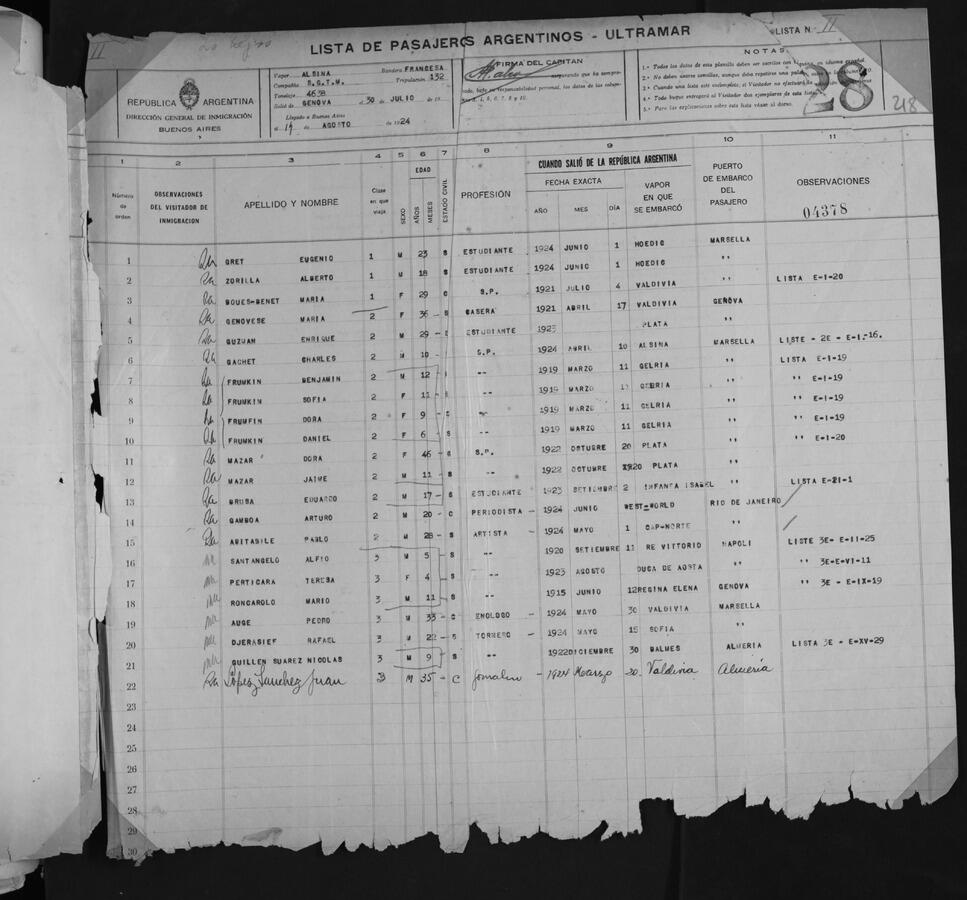 II
LISTA DE PASAJEROS ARGENTINOS - ULTRAMAR
LISTA N II
REPÚBLICA ARGENTINA
DIRECCIÓN GENERAL DE INMIGRACIÓN
BUENOS AIRES
Vapor ALSINA Bandera FRANCESA
Compañía S.G.T.M. Tripulación 132
Tonelaje 4638
Salió de GENOVA el 30 DE JULIO de 19
Llegado a Buenos Aires
el 19 de AGOSTO de 1924
FIRMA DEL CAPITAN
NOTAS
28
218
1 2 3 4 5 6 7 8 9 10 11
Número de orden
OBSERVACIONES DEL VISITADOR DE INMIGRACION
APELLIDO Y NOMBRE
Clase en que viaja
SEXO
EDAD
AÑOS
MESES
ESTADO CIVIL
PROFESIÓN
CUANDO SALIÓ DE LA REPÚBLICA ARGENTINA
FECHA EXACTA
AÑO MES DÍA
VAPOR EN QUE SE EMBARCÓ
PUERTO DE EMBARCO DEL PASAJERO
OBSERVACIONES
04378
1 GRET EUGENIO 1 M 23 S ESTUDIANTE 1924 JUNIO 1 HOEDIC MARSELLA
2 ZORILLA ALBERTO 1 M 18 S ESTUDIANTE 1924 JUNIO 1 HOEDIC ''
3 BOUES-BENET MARIA 1 F 29 C S.P. 1921 JULIO 4 VALDIVIA '' LISTA E-I-20
4 GENOVESE MARIA 2 F 36 S CASERA 1921 ABRIL 17 VALDIVIA GENOVA
5 GUZMAN ENRIQUE 2 M 29 ESTUDIANTE 1923 PLATA
6 GACHET CHARLES 2 M 10 S.P. 1924 ABRIL 10 ALSINA MARSELLA LISTE - 2E - E-I.-16.
7 FRUMKIN BENJAMIN 2 M 12 -- 1919 MARZO 11 GELRIA '' LISTA E-I-19
8 FRUMKIN SOFIA 2 F 11 -- 1919 MARZO 11 GELRIA '' '' E-I-19
9 FRUMFIN DORA 2 F 9 -- 1919 MARZO 11 GELRIA '' '' E-I-19
10 FRUMKIN DANIEL 2 F 6 S -- 1919 MARZO 11 GELRIA '' '' E-I-19
11 MAZAR DORA 2 F 46 C S.P. 1922 OSTUGRE 20 PLATA '' '' E-I-20
12 MAZAR JAIME 2 M 11 S -- 1922 OCTUMBRE 20 PLATA ''
13 BRUSA EDUARDO 2 M 17 S ESTUDIANTE 1923 SETIEMBRE 2 INFANTA ISABEL '' LISTA E-II-1
14 GAMBOA ARTURO 2 M 20 C PERIODISTA - 1924 JUNIO WEST-WORLD RIO DE JANEIRO
15 ABITABILE PABLO 2 M 28 S ARTISTA - 1924 MAYO 1 CAP-NORTE ''
16 SANTANGELO ALFIO 3 M 5 S -- 1920 SETIEMBRE 11 RE VITTORIO NAPOLI LISTE 3E- E-II-25
17 PERTICARA TERESA 3 F 4 S -- 1923 AGOSTO DUCA DE AOSTA '' '' 3E-E-VI-11
18 RONCAROLO MARIO 3 M 11 S -- 1915 JUNIO 12 REGINA ELENA GENOVA '' 3E - E-IX-19
19 AUGE PEDRO 3 M 33 C ENOLOGO - 1924 MAYO 30 VALDIVIA MARSELLA
20 DJERASIEF RAFAEL 3 M 22 S TORNERO - 1924 MAYO 15 SOFIA ''
21 GUILLEN SUAREZ NICOLAS 3 M 9 S -- 1922 DICIEMBRE 30 BALMES ALMERIA LISTA 3E - E-XV-29
22 López Sanchez Juan 3 M 35 - C Jornalero - 1924 Marzo 30 Valdivia Almería
23
24
25
26
27
28
29
30